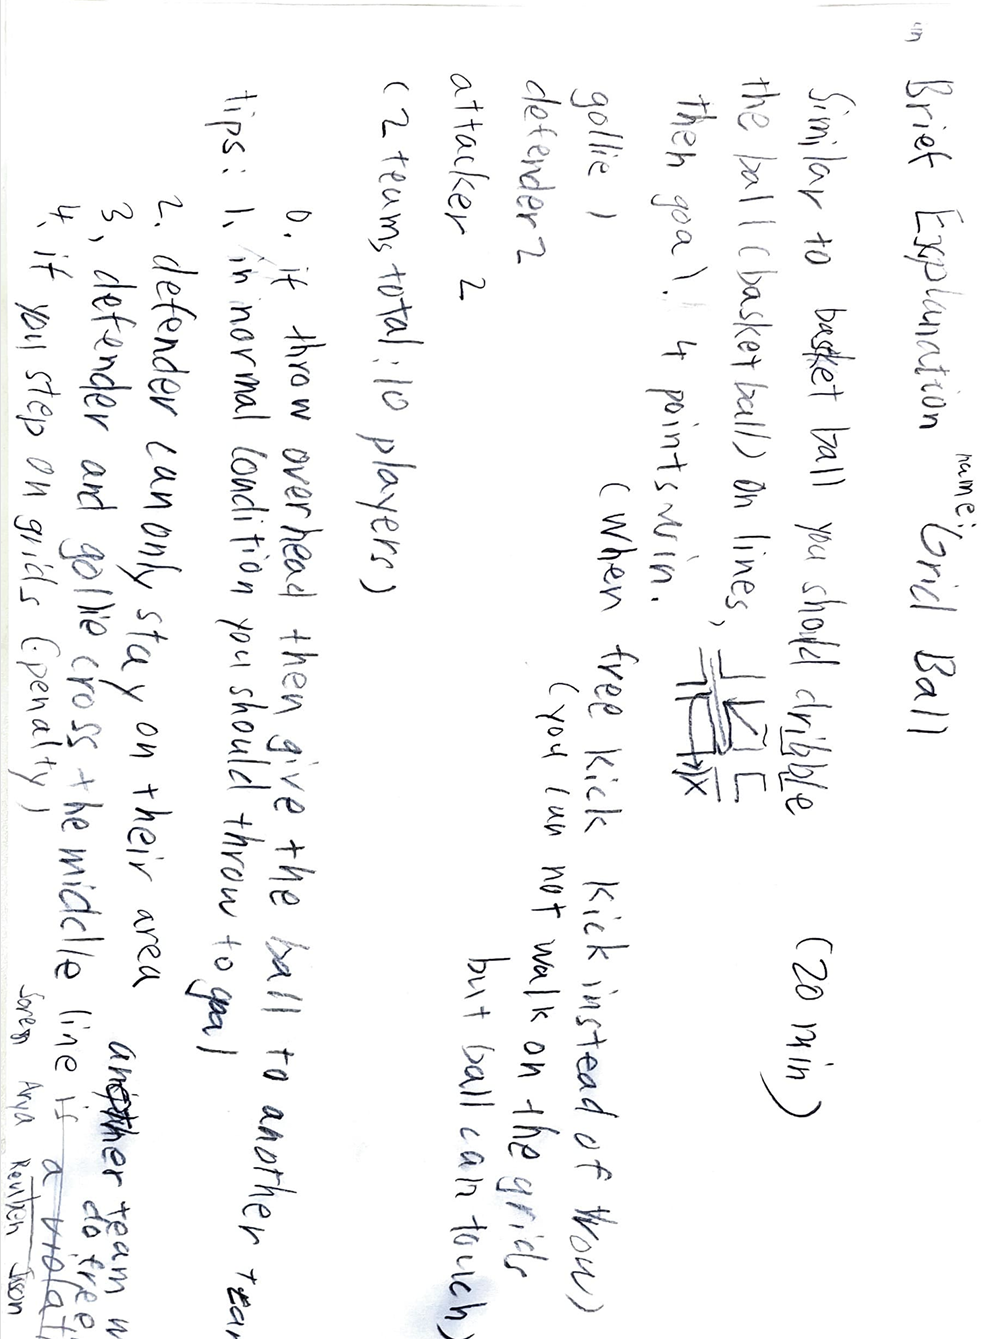 Brief Explanation name: Grid Ball
Similar to basket ball you should dribble (20 min)
the ball (basketball) on lines,
then goal. 4 points win.
gollie 1 (when free kick kick instead of throw)
defender 2 (you can not walk on the grids
attacker 2 but ball can touch)
(2 teams, total: 10 players)
0. if throw overhead then give the ball to another team
tips: 1. in normal condition you should throw to goal
2. defender can only stay on their area
3. defender and gollie cross the middle line is a
another team
do free
4. if you step on grids (penalty)
Soren Arya Reuben Json